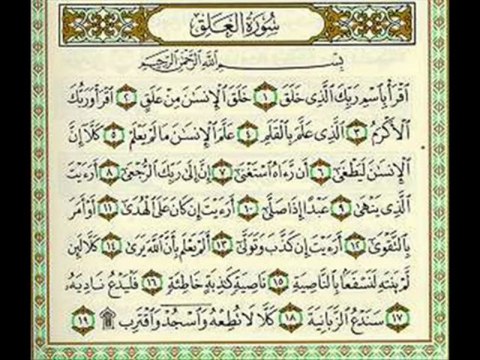 سُورَةُ العَلَقِ
بِسْمِ اللَّهِ الرَّحْمَٰنِ الرَّحِيمِ
ٱقْرَأْ بِٱسْمِ رَبِّكَ ٱلَّذِى خَلَقَ ١ خَلَقَ ٱلْإِنسَٰنَ مِنْ عَلَقٍ ٢ ٱقْرَأْ وَرَبُّكَ
ٱلْأَكْرَمُ ٣ ٱلَّذِى عَلَّمَ بِٱلْقَلَمِ ٤ عَلَّمَ ٱلْإِنسَٰنَ مَا لَمْ يَعْلَمْ ٥ كَلَّآ إِنَّ
ٱلْإِنسَٰنَ لَيَطْغَىٰٓ ٦ أَن رَّءَاهُ ٱسْتَغْنَىٰٓ ٧ إِنَّ إِلَىٰ رَبِّكَ ٱلرُّجْعَىٰٓ ٨ أَرَءَيْتَ
ٱلَّذِى يَنْهَىٰ ٩ عَبْدًا إِذَا صَلَّىٰٓ ١٠ أَرَءَيْتَ إِن كَانَ عَلَى ٱلْهُدَىٰٓ ١١ أَوْ أَمَرَ
بِٱلتَّقْوَىٰٓ ١٢ أَرَءَيْتَ إِن كَذَّبَ وَتَوَلَّىٰٓ ١٣ أَلَمْ يَعْلَم بِأَنَّ ٱللَّهَ يَرَىٰ ١٤ كَلَّا لَئِن
لَّمْ يَنتَهِ لَنَسْفَعًۢا بِٱلنَّاصِيَةِ ١٥ نَاصِيَةٍ كَٰذِبَةٍ خَاطِئَةٍ ١٦ فَلْيَدْعُ نَادِيَهُۥ
١٧ سَنَدْعُ ٱلزَّبَانِيَةَ ١٨ كَلَّا لَا تُطِعْهُ وَٱسْجُدْ وَٱقْتَرِب ۩ ١٩